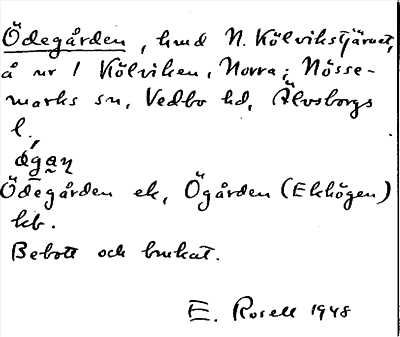 Ödegården, hmd N. Kölvikstjärnet,
å nr 1 Kölviken, Norra; Nösse-
marks sn, Vedbo hd, Älvsborgs
l.
Ödegården ek, Ögården (Ekhögen)
kb.
Bebott och brukat.
E. Rosell 1948